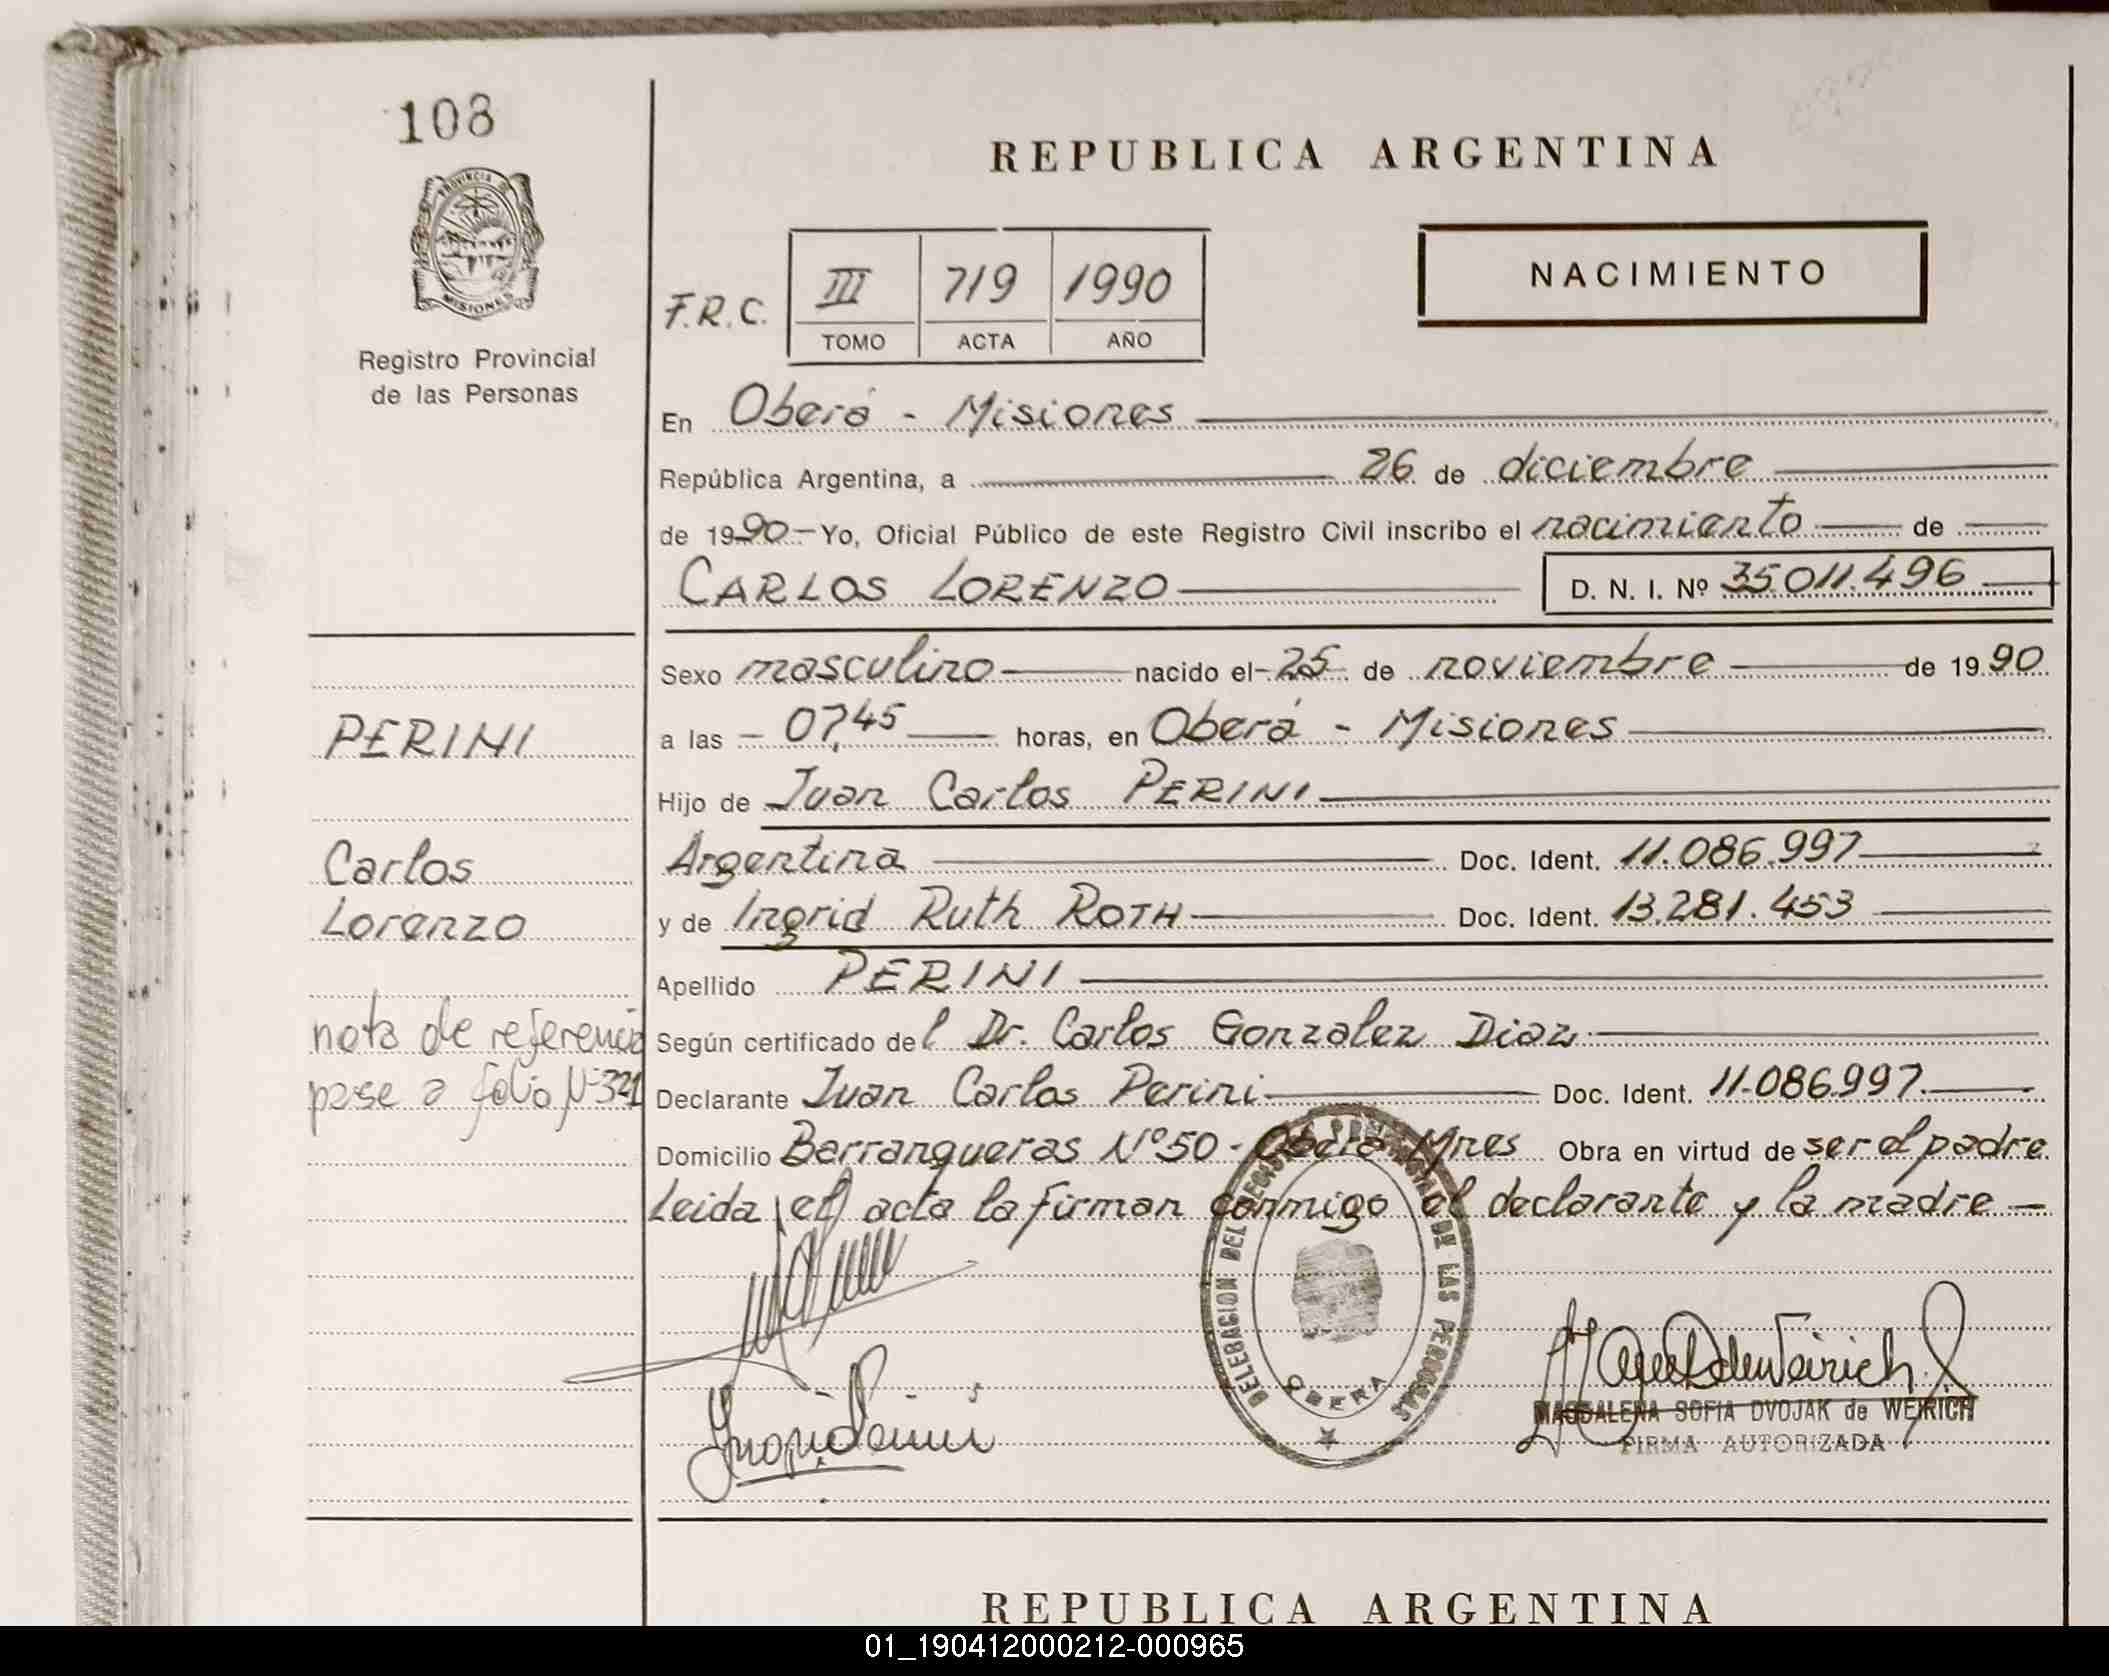 108
PROVINCIA DE
MISIONES
Registro Provincial
de las Personas
REPUBLICA ARGENTINA
NACIMIENTO
F.R.C. III 719 1990
TOMO ACTA AÑO
En Oberá - Misiones
República Argentina, a 26 de diciembre
de 1990 - Yo, Oficial Público de este Registro Civil inscribo el nacimiento de
CARLOS LORENZO D. N. I. Nº 35.011.496
Sexo masculino nacido el 25 de noviembre de 1990
a las - 07,45 horas, en Oberá - Misiones
Hijo de Juan Carlos PERINI
Argentina Doc. Ident. 11.086.997
y de Ingrid Ruth ROTH Doc. Ident. 13.281.453
Apellido PERINI
Según certificado del Dr. Carlos Gonzalez Diaz
Declarante Juan Carlos Perini Doc. Ident. 11.086.997
Domicilio Barranqueras Nº 50 - Oberá Mnes Obra en virtud de ser el padre
Leida el acta la firman conmigo el declarante y la madre -
PERINI
Carlos
Lorenzo
nota de referencia
pase a folio Nº 321
DELEGACION DEL REGISTRO PROVINCIAL DE LAS PERSONAS
OBERA
MAGDALENA SOFIA DVOJAK de WEIRICH
FIRMA AUTORIZADA
REPUBLICA ARGENTINA
01_190412000212-000965